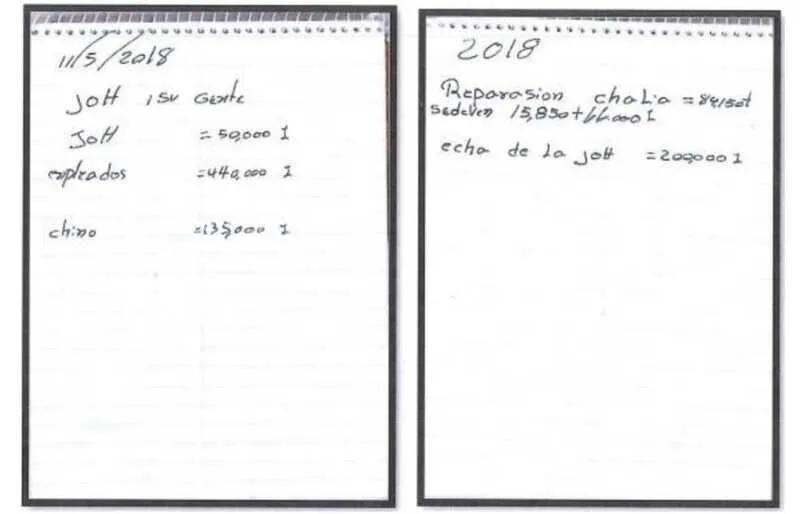 11/5/2018
JOH isu Gente
JOH =50,000 I
empleados =440,000 I
chino =135,000 I
2018
Reparasion chalio = 84150t
sedeven 15,850+66.000 I
echa de La JOH =200,000 I